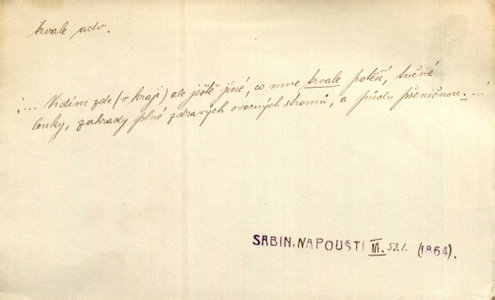 trvale adv.
:... Vidím zde (v kraji) ale ještě jiné, co mne trvale potěší, tučné
louky, zahrady plné zdravých ovocných stromů, a půdu pšeničnou...
SABIN, NA POUŠTI III. 53.1. (1864).